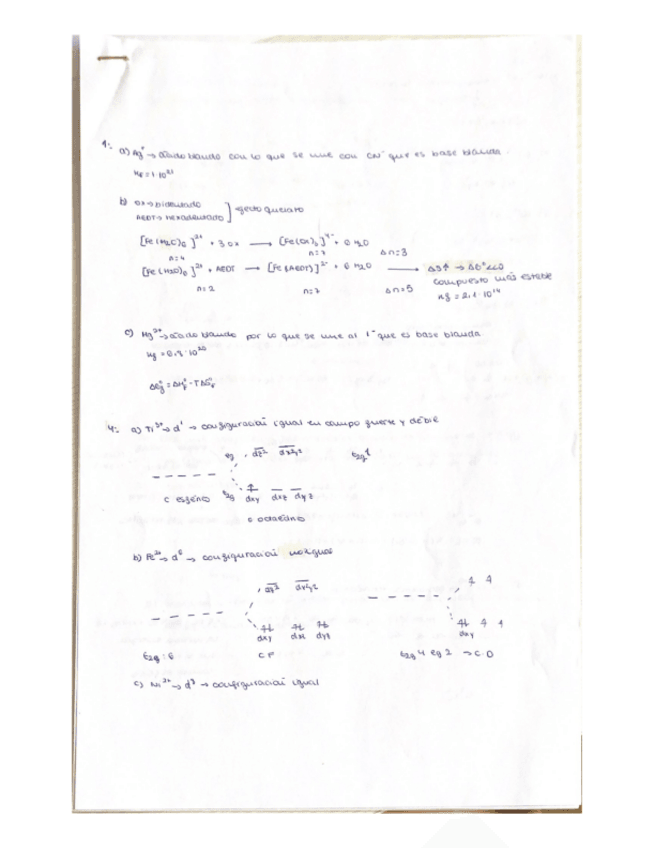 1.- a) Ag⁺ → ácido blando con lo que se une con CN⁻ que es base blanda.
Kf = 1·10²¹
b) ox → bidentado
AEDT → hexadentado ] efecto quelato
[Fe(H2O)6]²⁺ + 3 ox ⟶ [Fe(ox)3]⁴⁻ + 6 H2O
n=4 n=7 Δn=3
[Fe(H2O)6]²⁺ + AEDT ⟶ [Fe(AEDT)]²⁻ + 6 H2O ⟶ ΔS↑ → ΔG°<<0
n=2 n=7 Δn=5 compuesto más estable
Kf = 2,1·10¹⁴
c) Hg²⁺ → ácido blando por lo que se une al I⁻ que es base blanda.
ΔGf° = ΔHf° - TΔSf°
4.- a) Ti³⁺ → d¹ → configuración igual en campo fuerte y débil
eg dz² dx²y² t2g¹
c esférico t2g dxy dxz dyz
c octaédrico
b) Fe²⁺ → d⁶ → configuración no igual
dz² dx²y²
dxy dxz dyz dxy
t2g : 6 C F t2g 4 eg 2 → C.D
c) Ni²⁺ → d⁸ → configuración igual